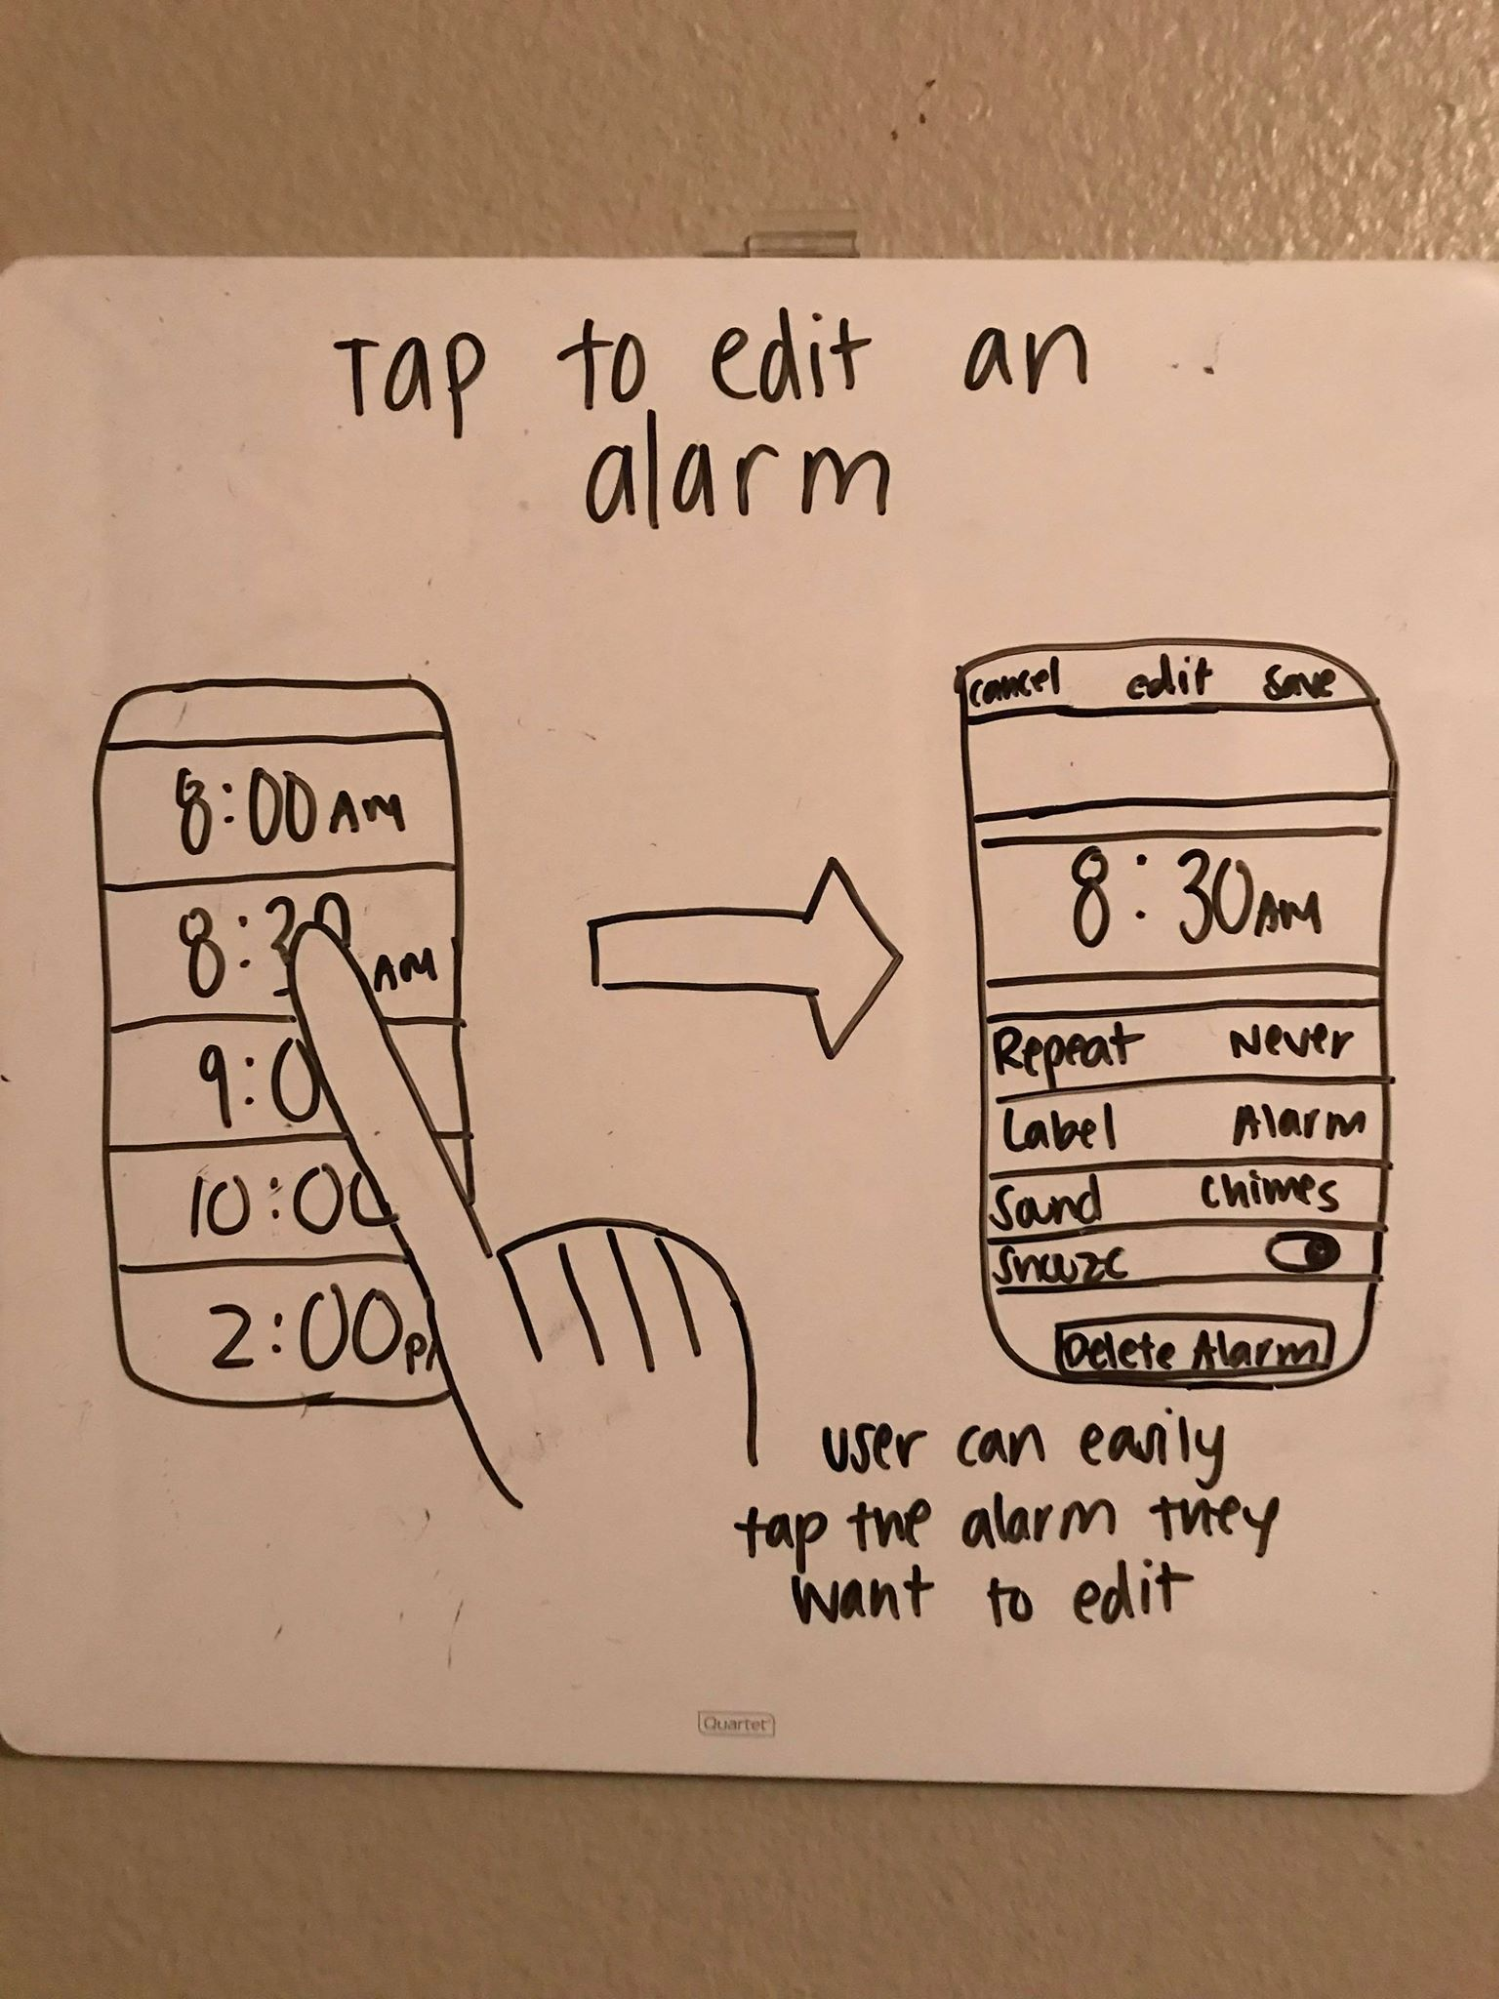 Tap to edit an
alarm
8:00 AM
8:30 AM
9:0
10:00
2:00 P
cancel edit save
8:30 AM
Repeat Never
Label Alarm
Sound Chimes
Snooze
Delete Alarm
user can easily
tap the alarm they
want to edit
Quartet